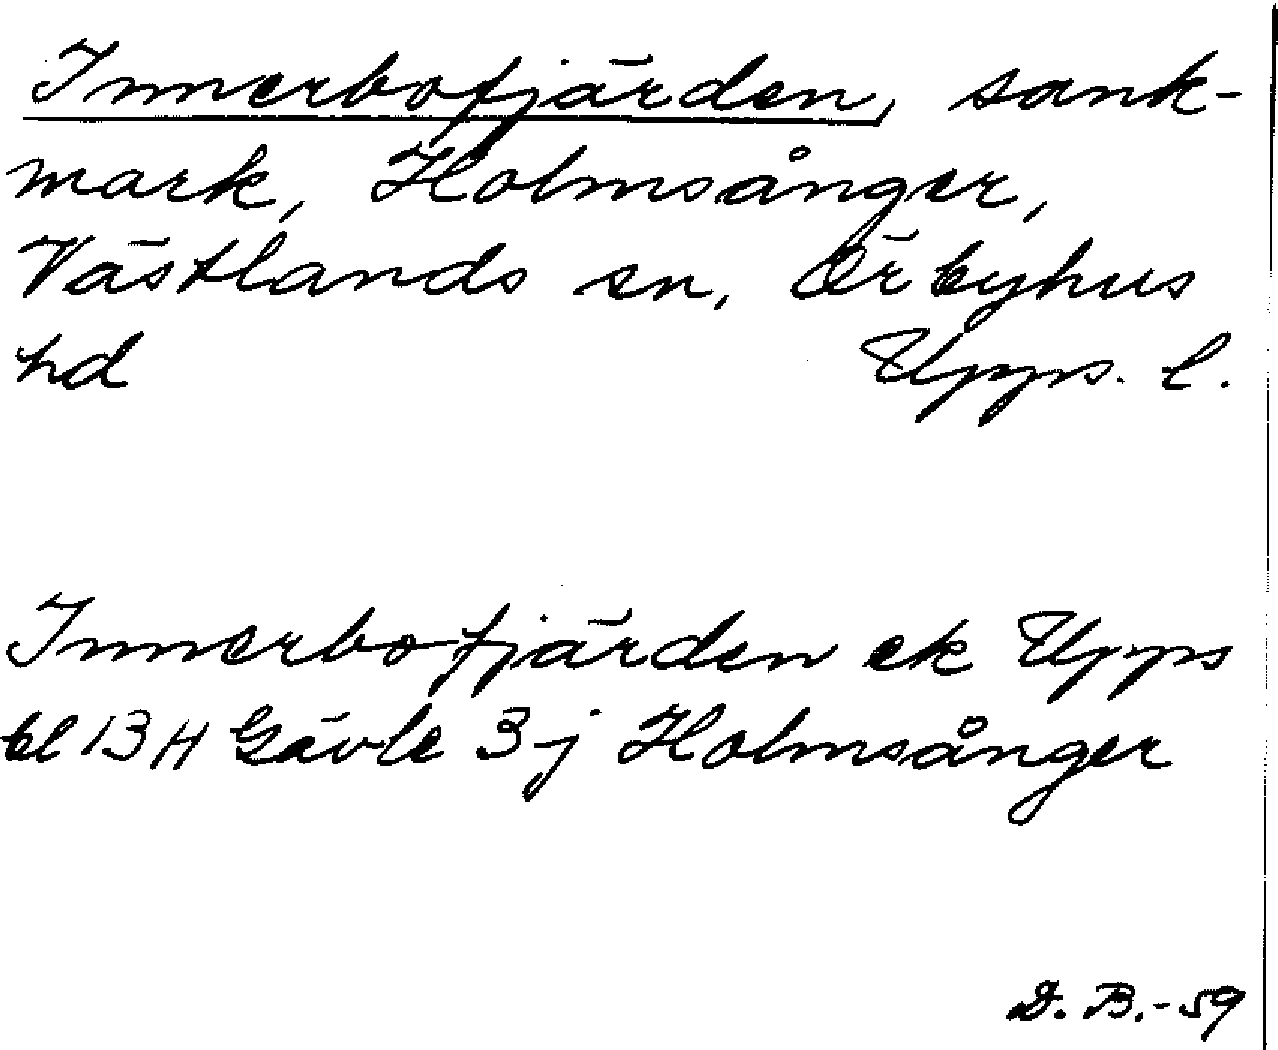 Innerbofjärden, sank-
mark, Holmsånger,
Västlands sn, Örbyhus
hd Upps. l.
Innerbofjärden ek Upps
bl 13 H Gävle 3 j Holmsånger
D. B. -59